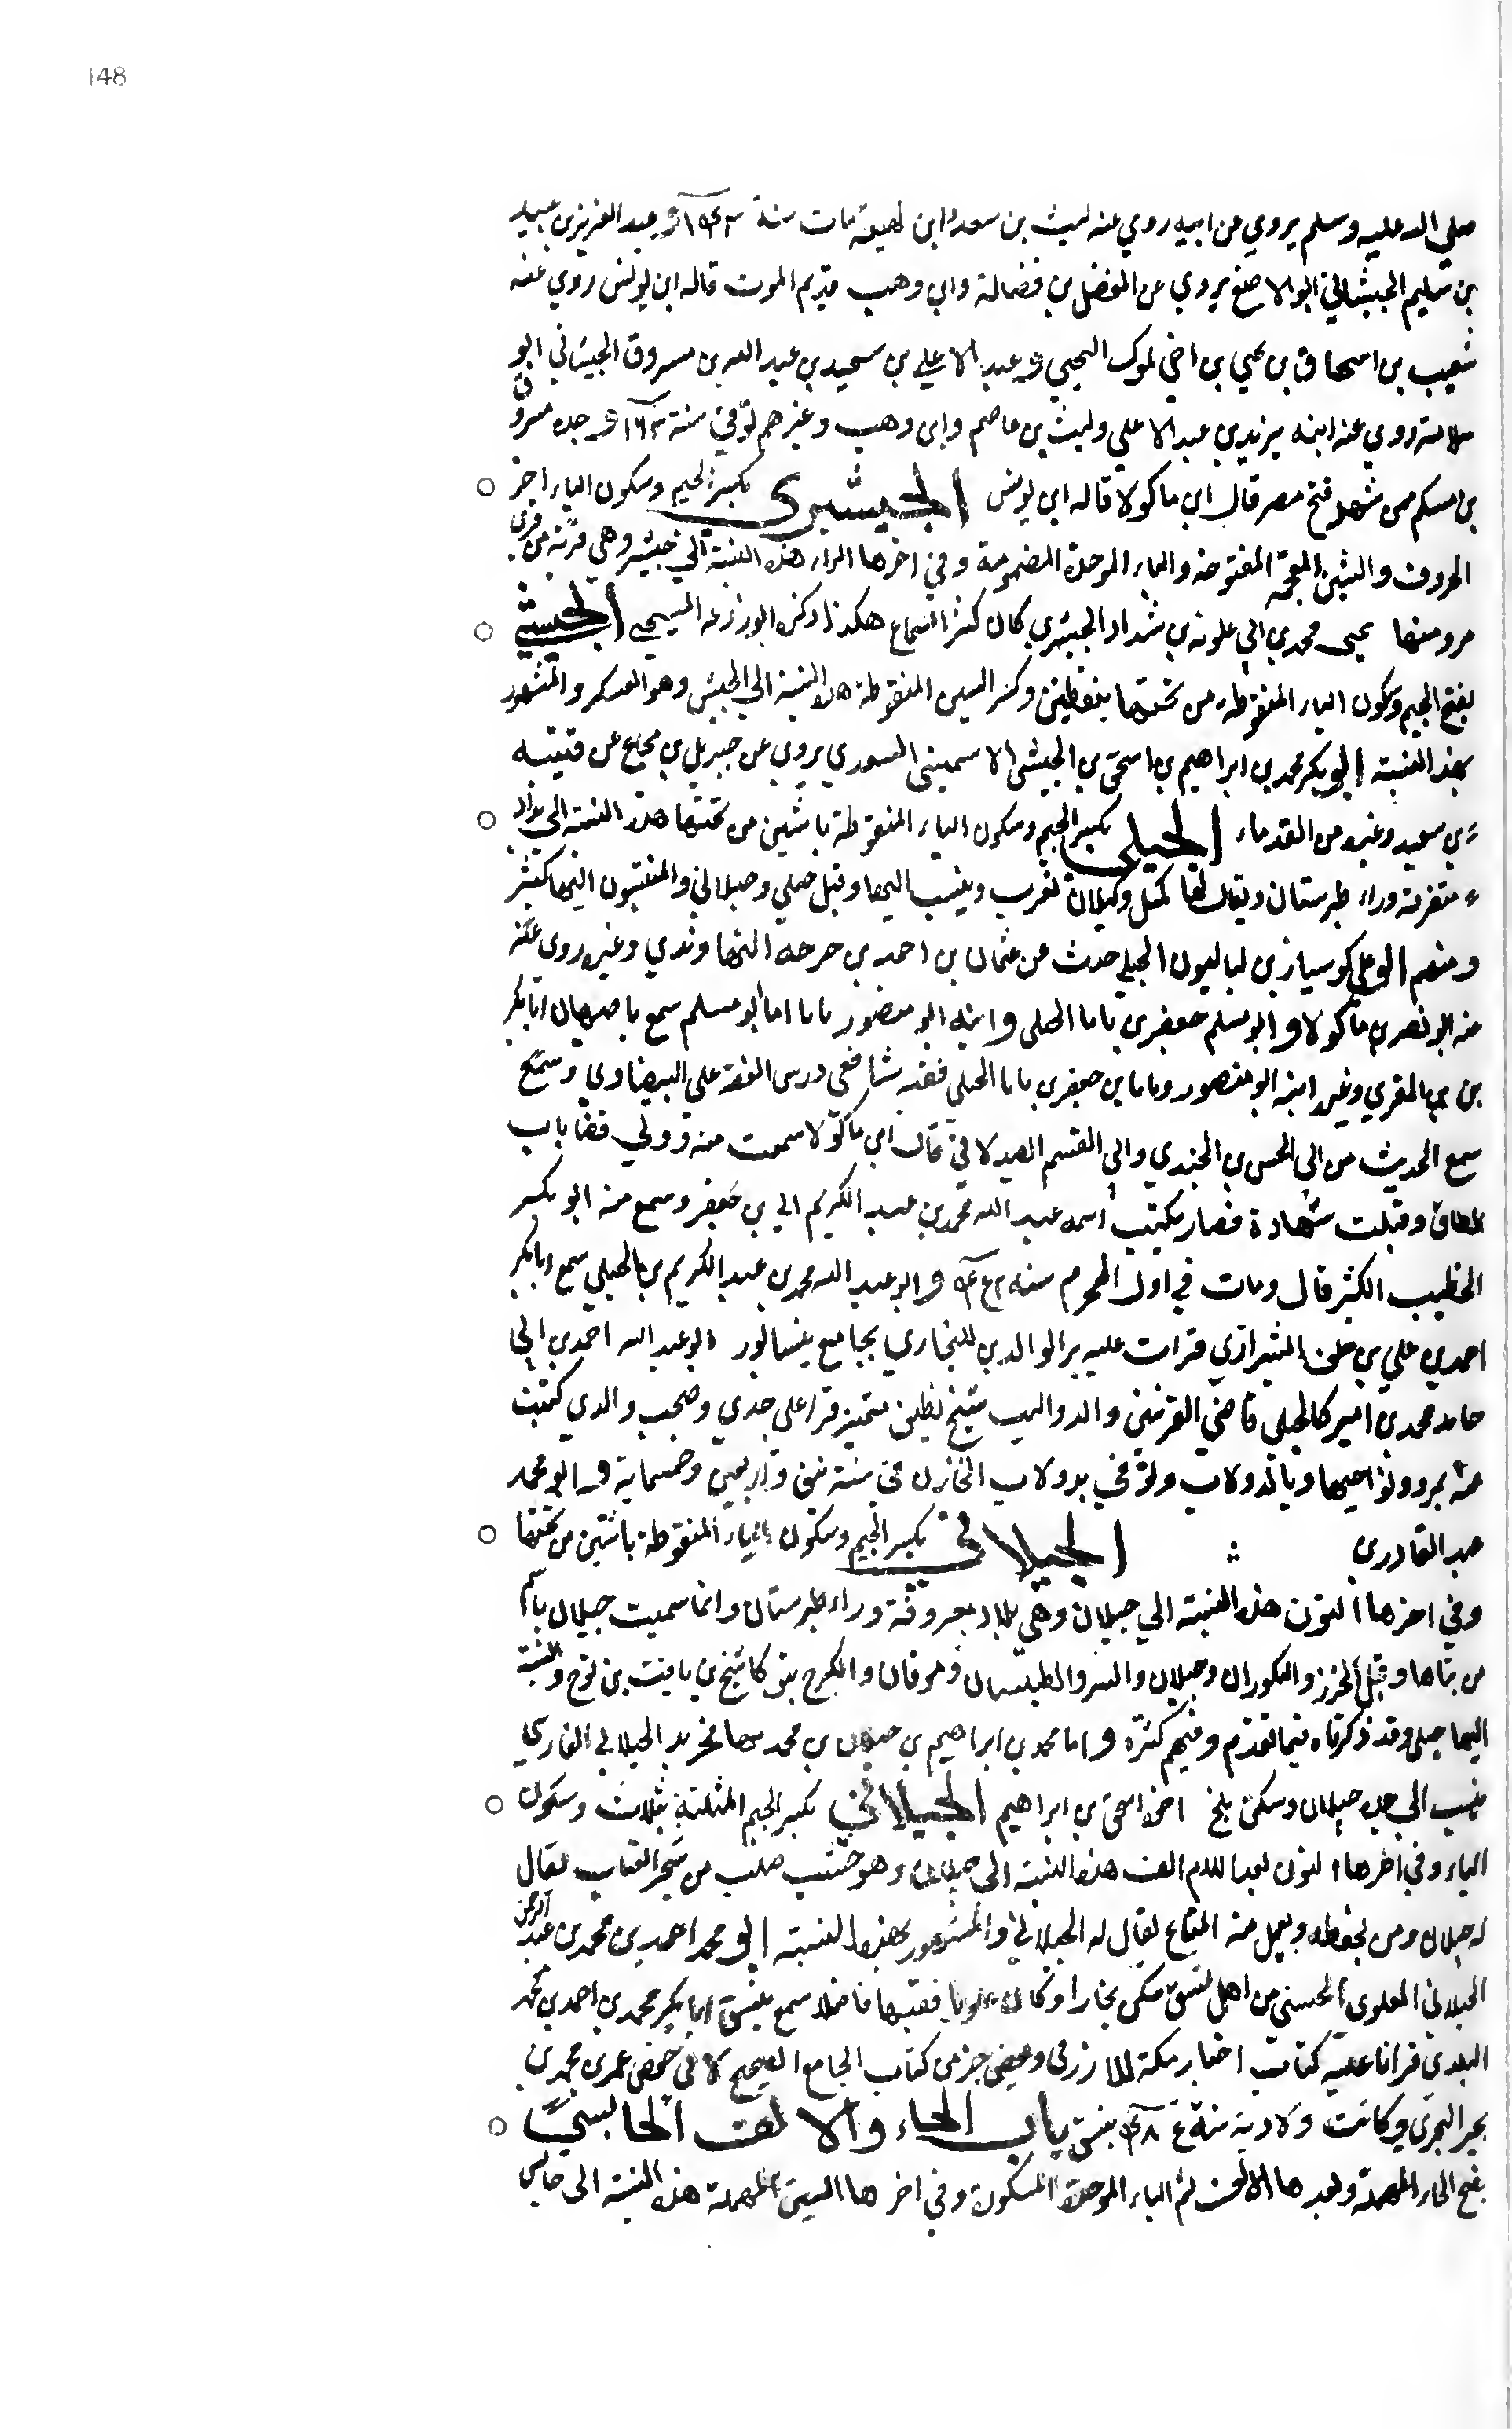 148
صلى الله عليه وسلم يروي عن ابيه روي عنه ليث بن سعد وابن لهيعة مات سنة وعبد العزيز بن عبيد
بن سليم الجيشاني ابو الاصبغ يروي عن المفضل بن فضالة وابن وهب قديم الموت قاله ابن يونس روي عنه
شعيب بن اسحاق بن يحيي بن اخي ملوك التجيبي وعبد الاعلي بن سعيد بن عبد الله بن مسروق الجيشاني ابو
سلامة روي عنه ابنه يزيد بن عبد الاعلي وليث بن عاصم وابن وهب وغيرهم توفي سنة ١٦٣ وجده مسروق
بن مسكم ممن شهد فتح مصر قال ابن ماكولا قاله ابن يونس الجيشبري بكسر الجيم وسكون الياء اخر
الحروف والشين المعجمة المفتوحة والباء الموحدة المضمومة وفي اخرها الراء هذه النسبة الي جيشبر وهي قرية من قري
مرو منها يحيى محمد بن ابي علونه بن شداد الجيشبري كان كثير السماع هكذا ذكره ابو زرعه السنجي الجيشي
بفتح الجيم وسكون الياء المنقوطة من تحتها بنقطتين وكسر الشين المنقوطة هذه النسبة الي الجيش وهو العسكر والمشهور
بهذا النسبة ابو بكر محمد بن ابراهيم بن اسحق بن الجيشي الاسميثني السعدي يروي عن جبريل بن مجاع عن قتيبه
بن سعيد وغيره من القدماء الجيلي بكسر الجيم وسكون الياء المنقوطة باثنين من تحتها هذه النسبة الي بلاد
متفرقة وراء طبرستان ويقال لها كيل وكيلان فعرب وينسب اليها وقيل جيلي وجيلاني والمنتسبون اليها كثير
ومنهم ابو علي كوشيار بن لباليون الجيلي حدث عن عثمان بن احمد بن خرجه النهاوندي وغيره روى عنه
منه ابو نصر بن ماكولا وابو مسلم جعفر بن بابا الجيلي وابنه ابو منصور بابا اما ابو مسلم سمع باصبهان ابا بكر
بن المقري وغيره ابنه ابو منصور وبابا بن جعفر بن بابا الجيلي فقيه شافعي درس الفقه علي البيضاوي وسمع
سمع الحديث من ابي الحسن بن الجندي وابي القسم الصيدلاني قال ابن ماكولا سمعت منه وولي قضا باب
الطاق وقبلت شهادة فصار يكتب اسمه عبد الله محمد بن عبد الكريم الي بن جعفر وسمع منه ابو بكر
الخطيب الكثير قال ومات في اول المحرم سنة وابو عبد الله محمد بن عبد الكريم بن الجيلي سمع ابا بكر
احمد بن علي بن خلف الشيرازي قرات عليه بر الوالدين للبخاري بجامع نيسابور ابو عبد الله احمد بن ابي
حامد محمد بن اميركا الجيلي قاضي القرينين والدواليب شيخ نظيف متميز قرا على جدي وصحب والدي كتبت
عنه بمرو ونواحيها وبالدولاب وتوفي بدولاب الخازن في سنة نيف واربعين وخمسماية وابو محمد
عبد القادر بن الجيلاني بكسر الجيم وسكون الياء المنقوطة باثنتين من تحتها
وفي اخرها النون هذه النسبة الي جيلان وهي بلاد معروفة وراء طبرستان وانما سميت جيلان باسم
من بناها وقيل الخزر والكوران وجيلان والببر والطيلسان وموقان والكرج بنو كاشح بن يافث بن نوح والنسبة
اليها جيلي وقد ذكرناه فيما تقدم وفيهم كثرة واما محمد بن ابراهيم بن جيلان بن محمد الجيلاني الفارسي
نسب الي جده جيلان وسكن بلخ اخو اسحق بن ابراهيم الجيلاني بكسر الجيم المثلثة بثلاث وسكون
الياء وفي اخرها النون بعد اللام الف هذه النسبة الى جيلان وهو خشب صلب من شجر العناب يقال
له جيلان ومن يخرطه ويعمل منه المتاع يقال له الجيلاني والمشهور بهذه النسبة ابو محمد احمد بن محمد بن عبد الرحمن
الجيلاني العلوي الحسني من اهل نسف سكن بخارا وكان علويا فقيها فاضلا سمع بنسف ابا بكر محمد بن احمد بن محمد
البلدي قرانا عليه كتاب اخبار مكة للازرقي وبعض جز من كتاب الجامع الصحيح لابي حفص عمر بن محمد بن
بجير البجري وكانت ولادته سنة بنسف باب الحاء والالف الحابسيّ
بفتح الحاء المهملة وبعدها الالف ثم الباء الموحدة المسكورة وفي اخرها السين المهملة هذه النسبة الى حابس